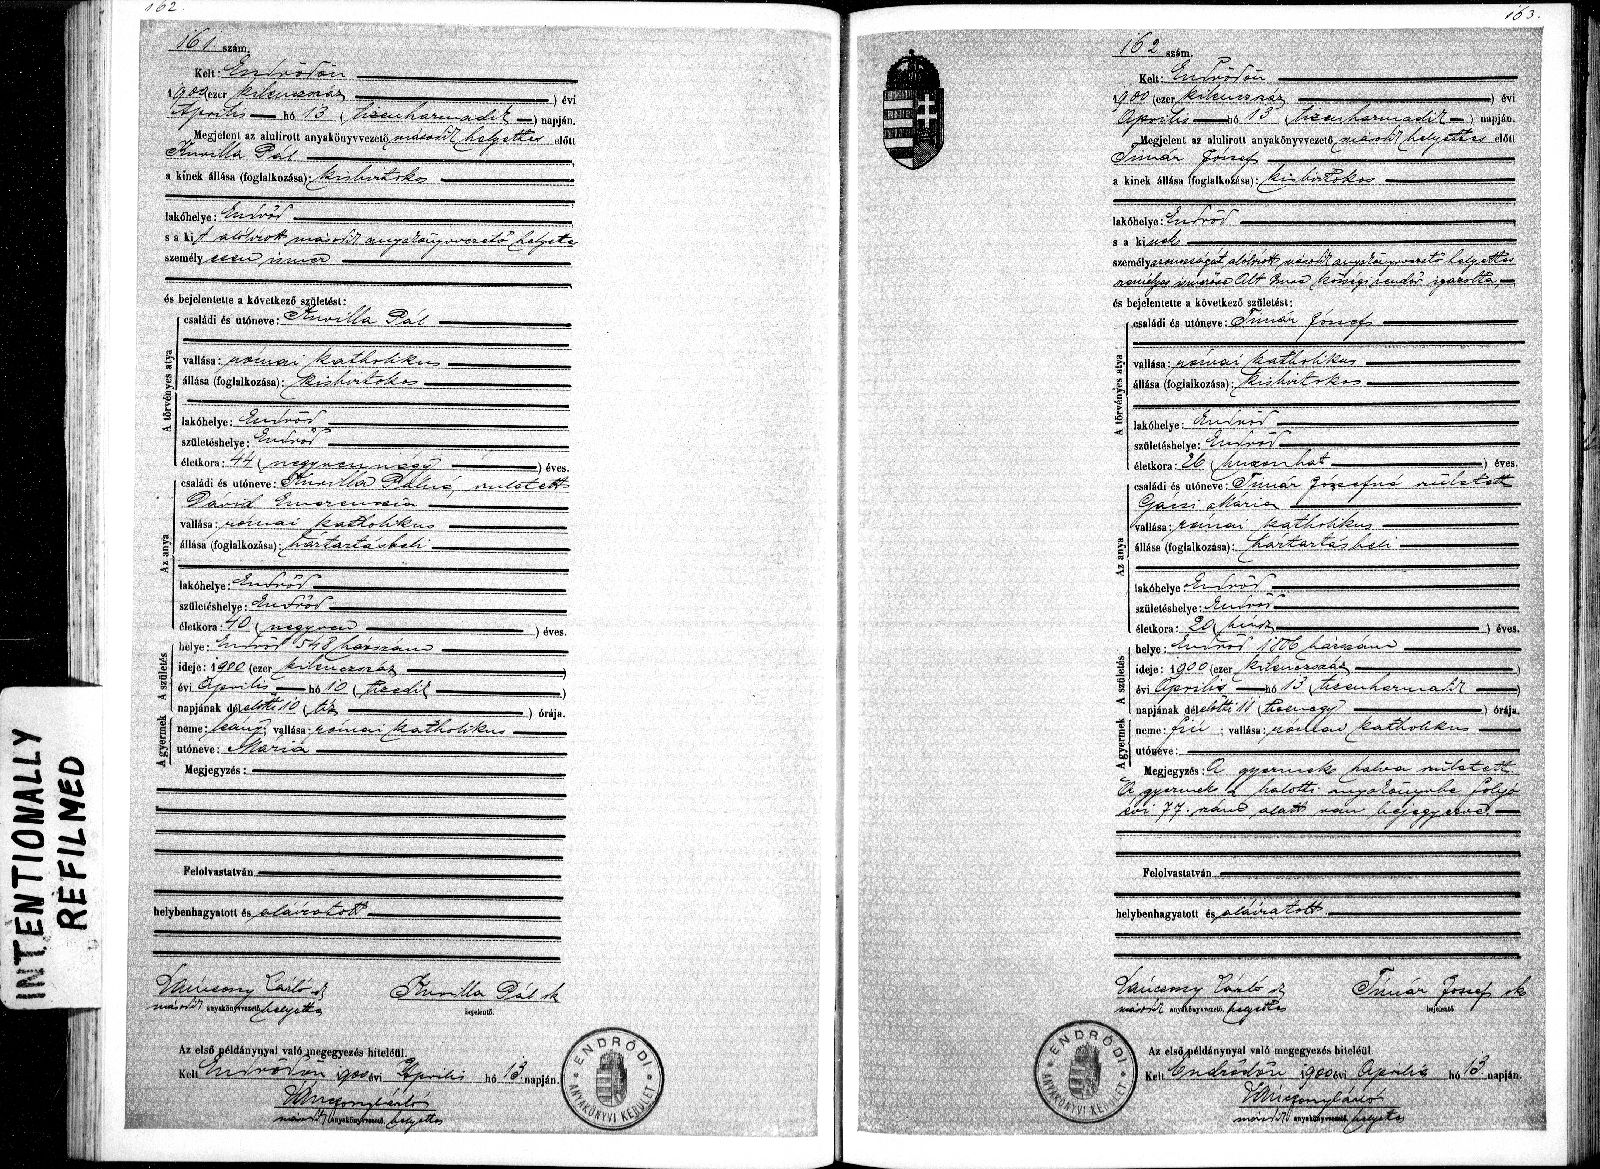 162.
161. szám.
Kelt: Endrődön
1900 (ezer kilenczszáz ) évi
Április hó 13 (tizenharmadik ) napján.
Megjelent az alulirott anyakönyvvezető, második helyettes előtt
Pál
a kinek állása (foglalkozása): kisbirtokos
lakóhelye: Endrőd
s a kit alólirott második anyakönyvvezető helyette
személyesen ismer
és bejelentette a következő születést:
A törvényes atya
családi és utóneve: Pál
vallása: római katholikus
állása (foglalkozása): kisbirtokos
lakóhelye: Endrőd
születéshelye: Endrőd
életkora: 44 (negyvennégy ) éves.
Az anya
családi és utóneve: Pálné, született
Dávid
vallása: római katholikus
állása (foglalkozása): háztartásbeli
lakóhelye: Endrőd
születéshelye: Endrőd
életkora: 40 (negyven ) éves.
A születés
helye: Endrőd 548 házszám
ideje: 1900 (ezer kilenczszáz )
évi Április hó 10 (tizedik )
napjának délelőtti 10 (tíz ) órája.
A gyermek
neme: leány; vallása: római katholikus
utóneve: Mária
Megjegyzés:
Felolvastatván
helybenhagyatott és aláiratott
Pál sk
második anyakönyvvezető. helyettes
bejelentő.
Az első példánynyal való megegyezés hiteléül.
Kelt Endrődön 1900 évi Április hó 13 napján.
második anyakönyvvezető. helyettes
ENDRŐDI ANYAKÖNYVI KERÜLET
INTENTIONALLY
REFILMED
163.
162 szám.
Kelt: Endrődön
1900 (ezer kilenczszáz ) évi
Április hó 13 (tizenharmadik ) napján.
Megjelent az alulirott anyakönyvvezető, második helyettes előtt
Timár József
a kinek állása (foglalkozása): kisbirtokos
lakóhelye: Endrőd
s a kinek
személyazonosságát alólirott második anyakönyvvezető helyettes
személyes ismerőse községi rendőr igazolta,
és bejelentette a következő születést:
A törvényes atya
családi és utóneve: Timár József
vallása: római katholikus
állása (foglalkozása): kisbirtokos
lakóhelye: Endrőd
születéshelye: Endrőd
életkora: 26 (huszonhat ) éves.
Az anya
családi és utóneve: Timár Józsefné született
Mária
vallása: római katholikus
állása (foglalkozása): háztartásbeli
lakóhelye: Endrőd
születéshelye: Endrőd
életkora: 20 (húsz ) éves.
A születés
helye: Endrőd 1806 házszám
ideje: 1900 (ezer kilenczszáz )
évi Április hó 13 (tizenharmadik )
napjának délelőtti 11 (tizenegy ) órája.
A gyermek
neme: fiú; vallása: római katholikus
utóneve:
Megjegyzés: A gyermek halva született.
A gyermek a halotti anyakönyvbe folyó
évi 77. szám alatt van bejegyezve.
Felolvastatván
helybenhagyatott és aláiratott
Timár József sk
második anyakönyvvezető. helyettes
bejelentő
Az első példánynyal való megegyezés hiteléül.
Kelt Endrődön 1900 évi Április hó 13 napján.
második anyakönyvvezető. helyettes
ENDRŐDI ANYAKÖNYVI KERÜLET